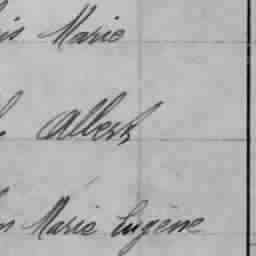 Marie
Albert
Marie Eugène